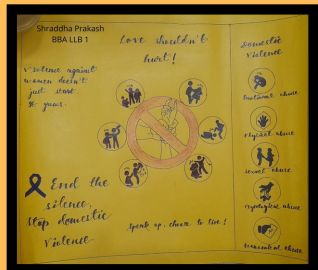 Shraddha Prakash
BBA LLB 1
Love shouldn't
hurt!
Violence against
women doesn't
just start
years
End the
silence,
Stop domestic
Violence
Speak up, choose to live!
Domestic
Violence
Emotional abuse
Physical abuse
sexual abuse
abuse
abuse